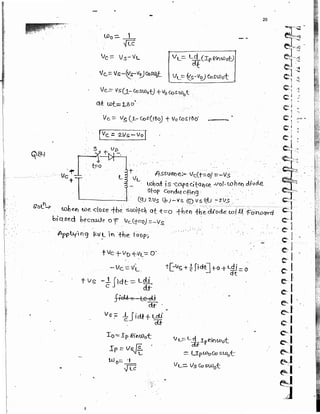 20
ω₀ = 1/√LC
Vc = Vs - VL
VL = L d/dt (Ip sinω₀t)
Vc = Vs-(Vs-V₀)cosω₀t
VL = (Vs-V₀)cosω₀t
Vc = Vs(1-cosω₀t) + V₀ cosω₀t
at ωt=180°
Vc = Vs(1-cos(180)) + V₀ cos180
Vc = 2Vs - V₀
S + VD -
t=0
Vc
L
VL
Assume:- Vc(t=0) = -Vs
what is capacitance vol. when diode
stop conducting
(a) 2Vs (b) -Vs (c) Vs (d) -2Vs
Sol:-
when we close the switch at t=0 then the diode will forward
biased because of Vc(t=0) = -Vs
Applying KVL in the loop,
+Vc + VD + VL = 0
-Vc = VL
+[-Vs + 1/C ∫idt] + 0 + L di/dt = 0
+Vs - 1/C ∫idt = L di/dt
Vs = 1/C ∫idt + L di/dt
I₀ = Ip sinω₀t
Ip = Vs√C/L
ω₀ = 1/√LC
VL = L d/dt Ip sinω₀t
= L Ip ω₀ cosω₀t
VL = Vs cosω₀t